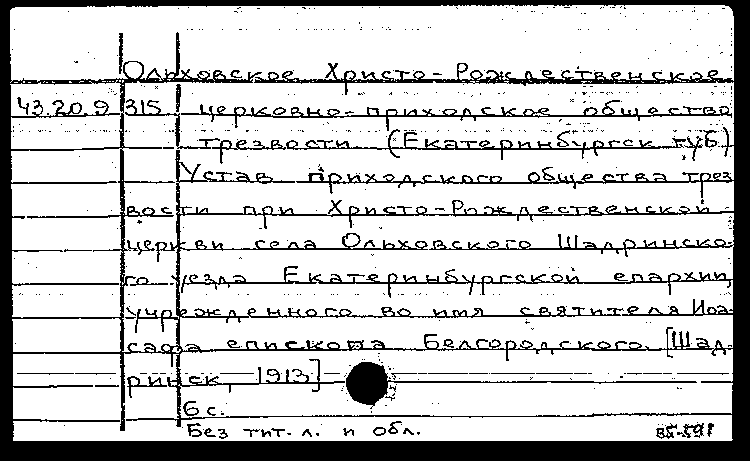 Ольховское Христо-Рождественское
43.20.9 315 церковно-приходское общество
трезвости (Екатеринбургск губ)
Устав приходского общества трез
вости при Христо-Рождественской
церкви села Ольховского Шадринско
го уезда Екатеринбургской епархии,
учрежденного во имя святителя Иоа
сафа епископа Белгородского. [Шад-
ринск, 1913]
6 с.
Без тит. л. и обл.